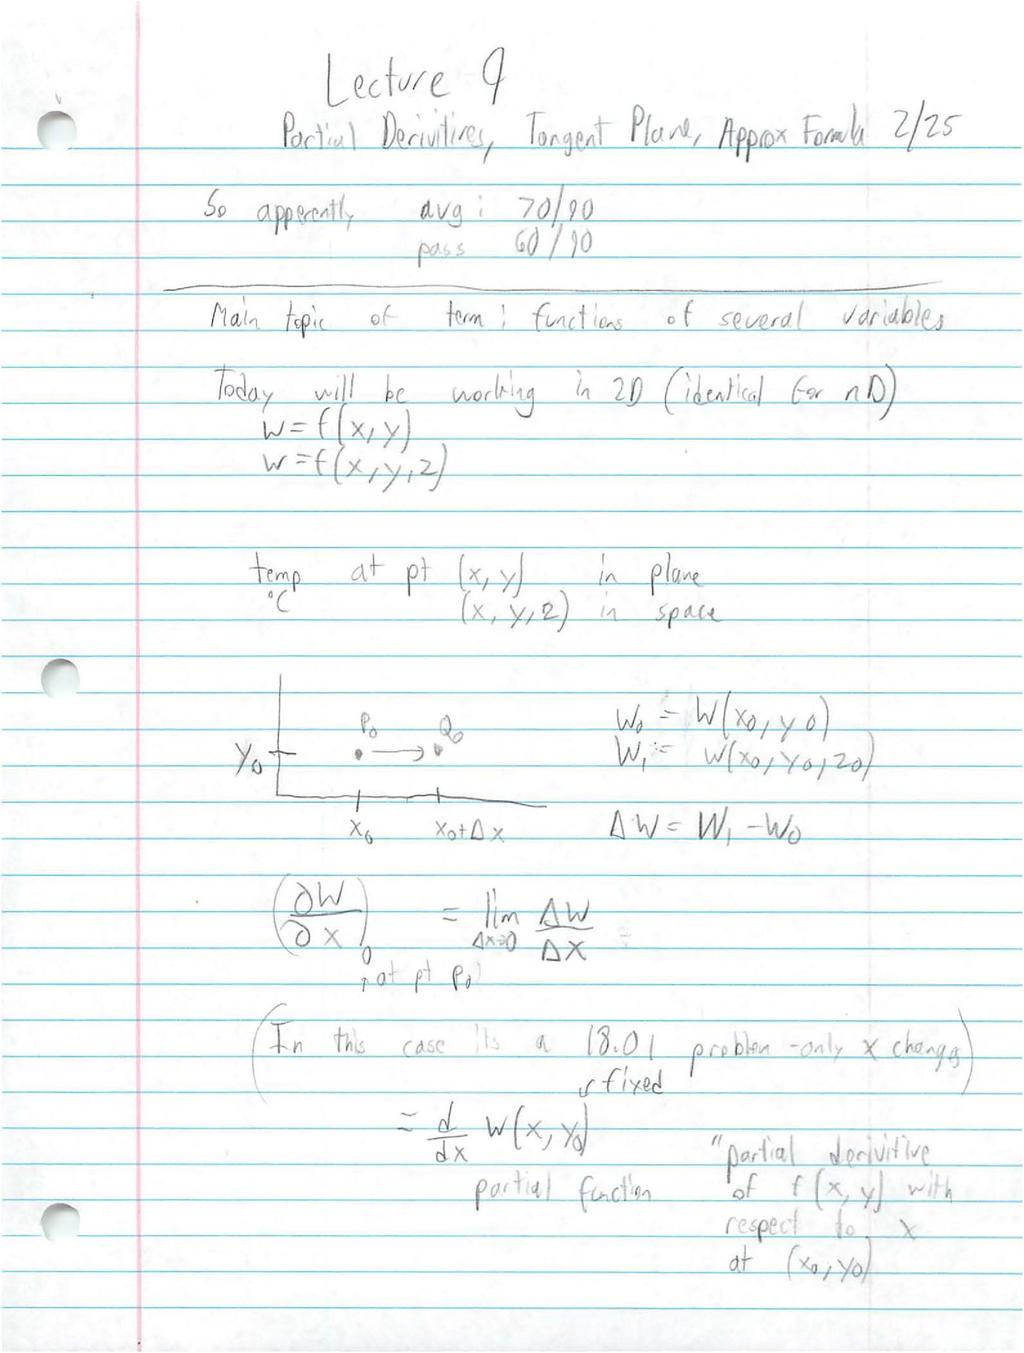 Lecture 9
Partial Derivitives, Tangent Plane, Approx Formula 2/25
So apperently avg: 70/90
pass 60/90
Main topic of term: functions of several variables
Today will be working in 2D (identical for nD)
w=f(x,y)
w=f(x,y,z)
temp at pt (x,y) in plane
°C (x,y,z) in space
P₀ Q₀
y₀
x₀ x₀+Δx
W₀ = W(x₀,y₀)
W₁ = W(x₀,y₀,z₀)
ΔW = W₁ - W₀
(∂W/∂x)₀ = lim Δx→0 ΔW/Δx
↑ at pt P₀
(In this case its a 18.01 problem - only x changes)
↙ fixed
= d/dx W(x,y₀)
partial function
"partial derivitive
of f(x,y) with
respect to x
at (x₀,y₀)